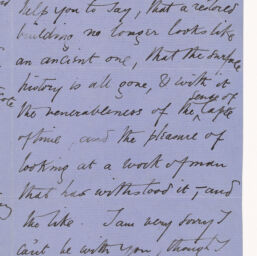 help you to say, that a restored
building no longer looks like
an ancient one, that the surface
history is all gone, & with it
the venerableness of the lapse of
time, and the pleasure of
looking at a work of man
that has withstood it, and
the like. I am very sorry I
can't be with you, though I